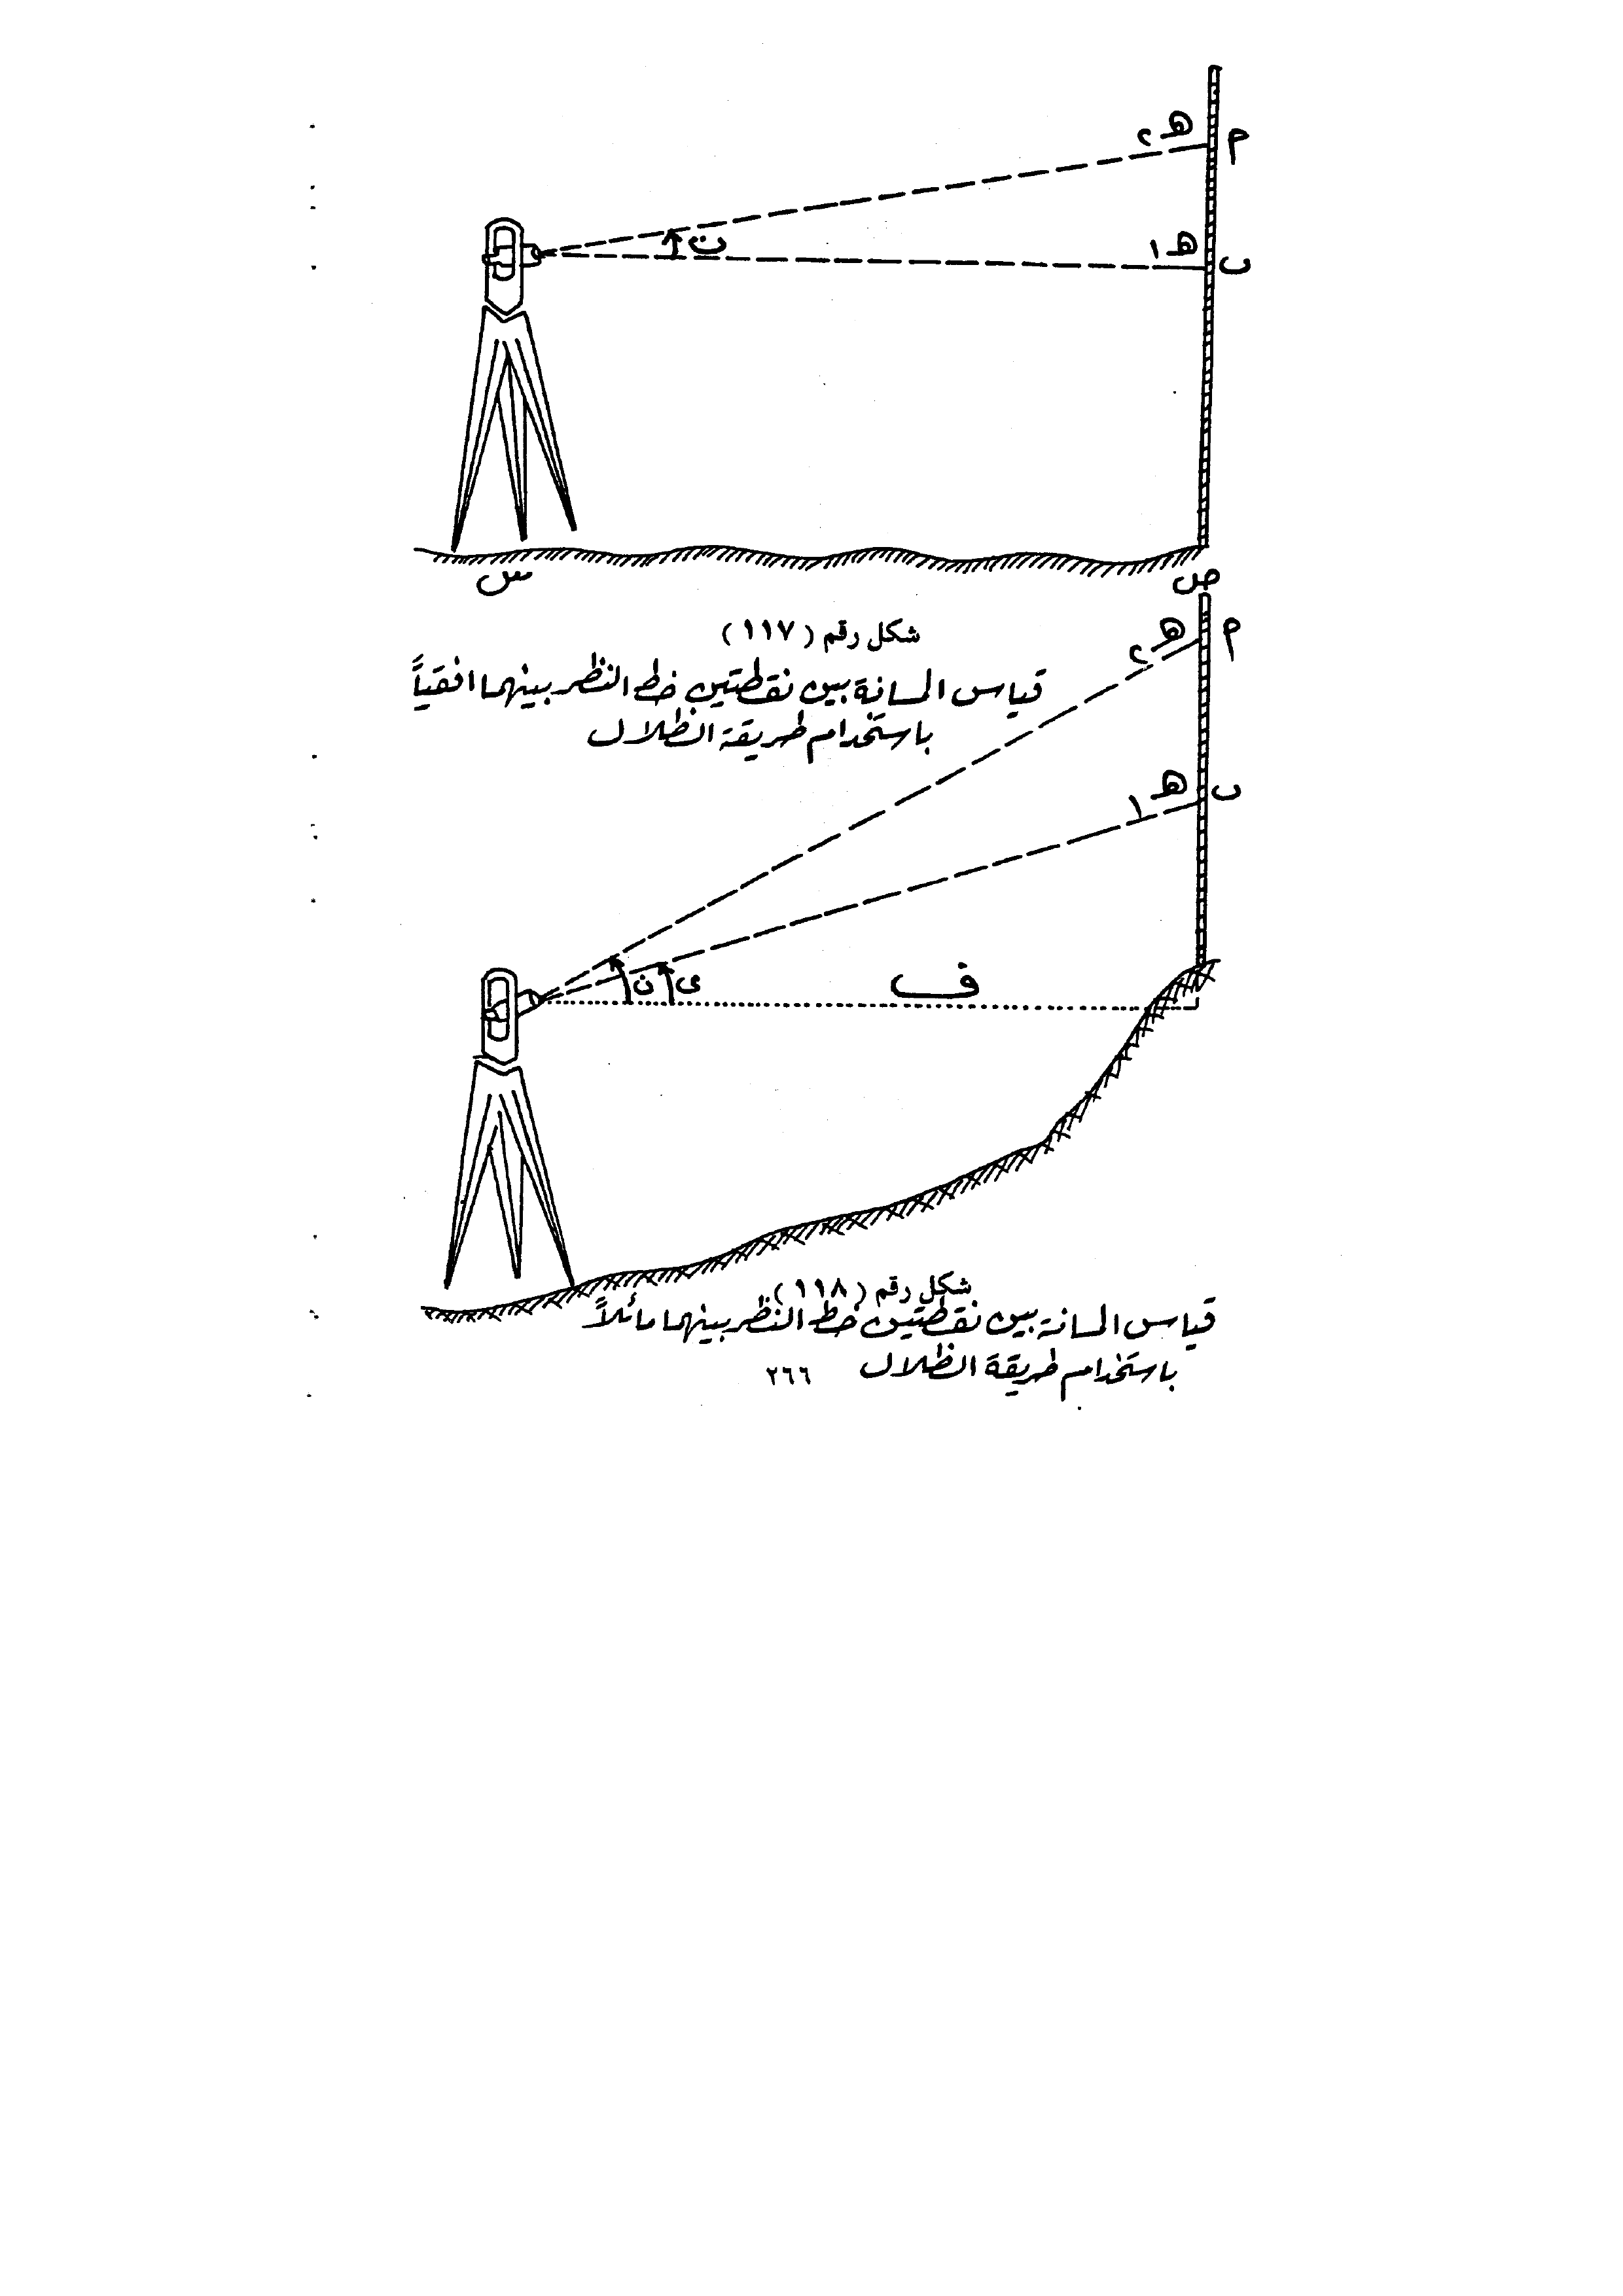 هـ ٢
م
ن
هـ ١
ب
س
ص
شكل رقم (١١٧)
قياس المسافة بين نقطتين خط النظر بينهما افقياً
باستخدام طريقة الظلال
هـ ٢
م
هـ ١
ب
ف
ى
ن
شكل رقم (١١٨)
قياس المسافة بين نقطتين خط النظر بينهما مائلاً
باستخدام طريقة الظلال
٢٦٦